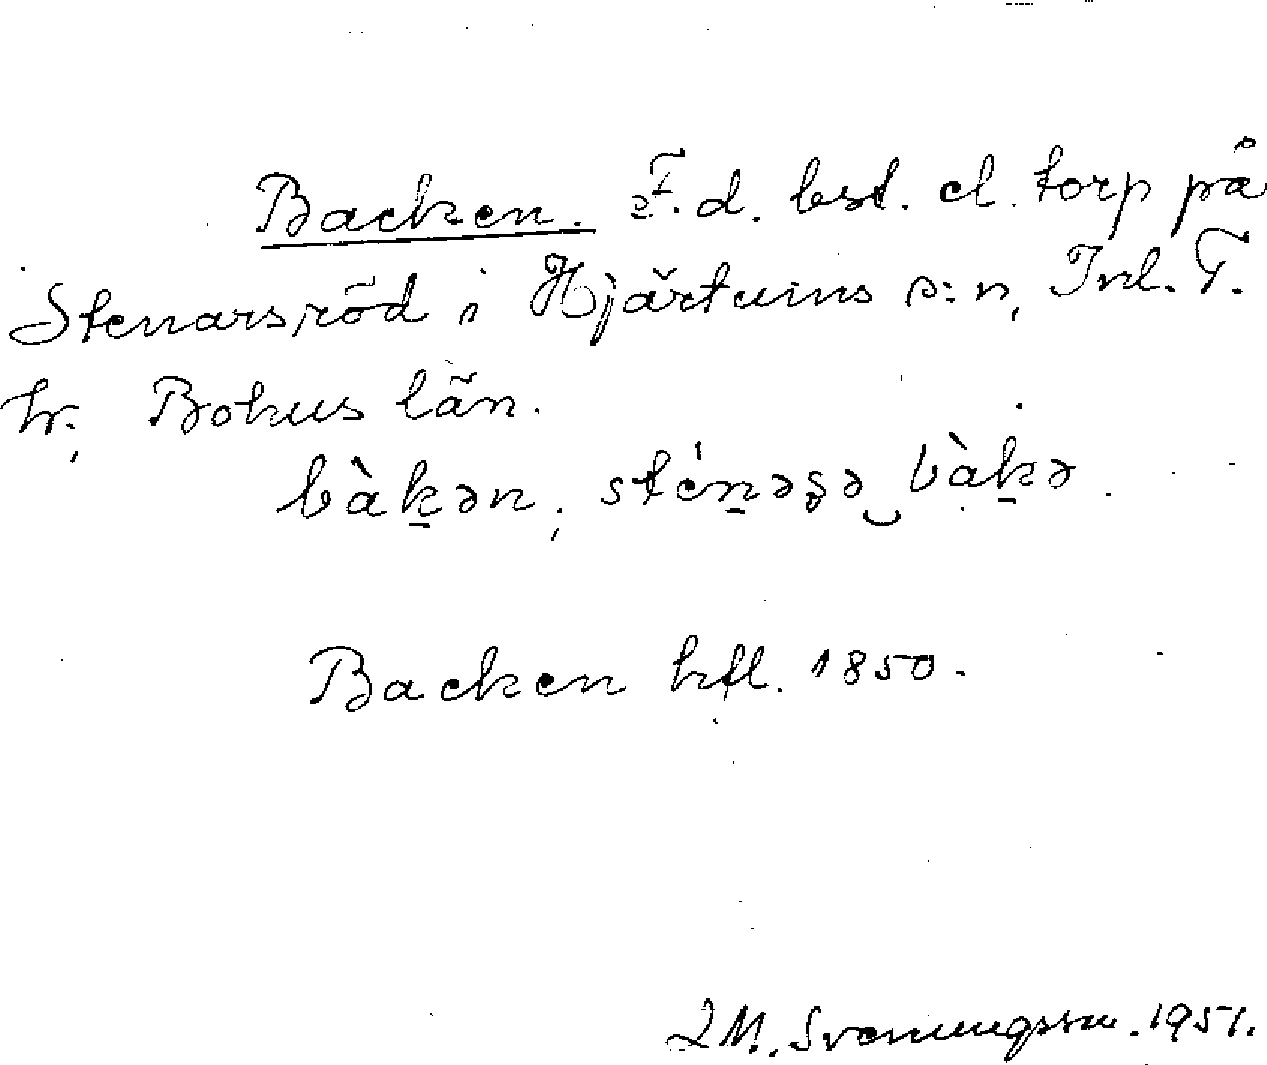 Backen. F.d. bst. el. torp på
Stenarsröd i Hjärtums s:n, Inl. T.
hr, Bohus län.
bàk̠ən, sté̠nəʂə‿bàk̠ə.
Backen hfl. 1850.
M. Svenungsson. 1951.